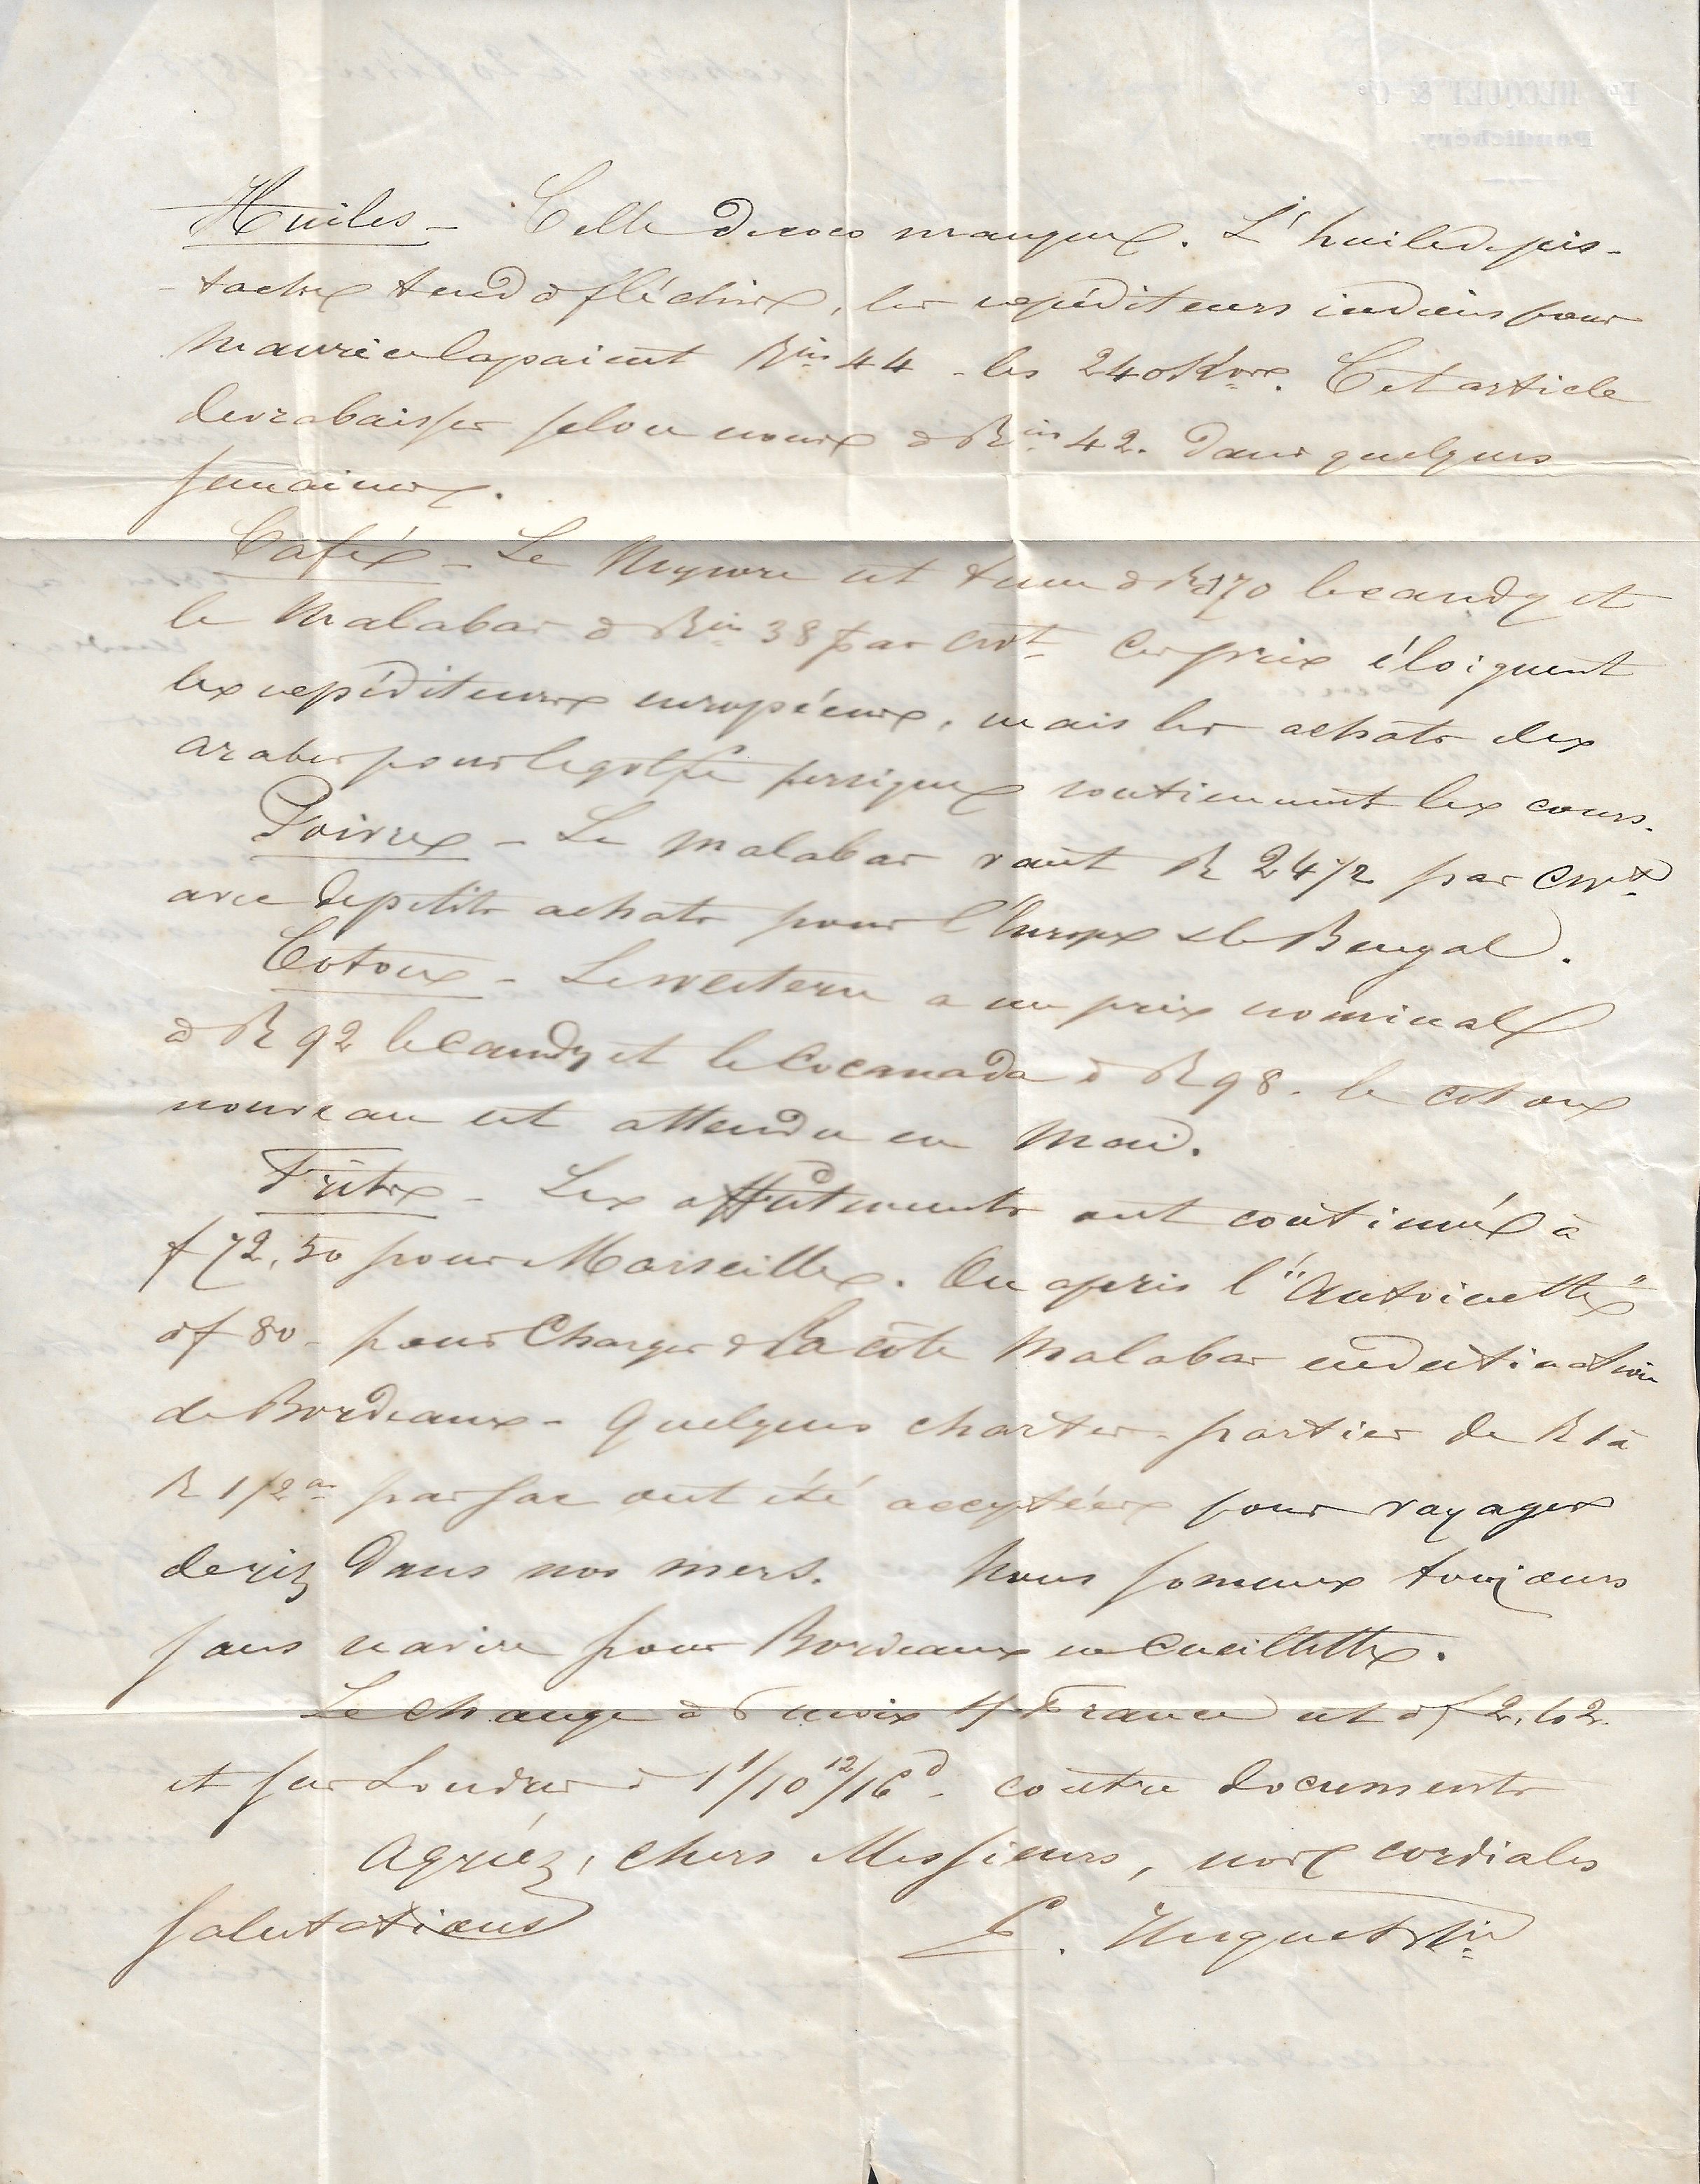 Huiles - Celle de coco manque. L'huile de pis-
-tache tend à fléchir, les expéditeurs indiens pour
Maurice la paient Ries 44 - les 240 K. Cet article
devra baisser selon nous à Ries 42. dans quelques
semaines.
Cafés - Le Mysore est tenu à R 170 le candy et
le Malabar à Ries 38 par cwt. Ces prix éloignent
les expéditeurs européens, mais les achats des
arabes pour le golfe persique soutiennent les cours.
Poivres - Le Malabar vaut R 24 1/2 par cwt
avec de petits achats pour l'Europe & le Bengal.
Cotons - Le Western a un prix nominal
à R 92 le candy et le Cocanada à R 98. le coton
nouveau est attendu en Mai.
Frêts - Les affrètements ont continué à
f 72,50 pour Marseille. On a pris l'"Antoinette"
à f 80 - pour charger à la côte Malabar en destination
de Bordeaux - Quelques charter-parties de R 1 à
R 1/2 as par sac ont été acceptées pour voyages
de riz dans nos mers. Nous sommes toujours
sans navire pour Bordeaux en cueillette.
Le change à 6 mois s/ France est à f 2,42.
et sur Londres à 1/10 12/16 d - contre documents
Agréez, chers Messieurs, nos cordiales
salutations
Et HECQUET & Cie
Pondichéry.